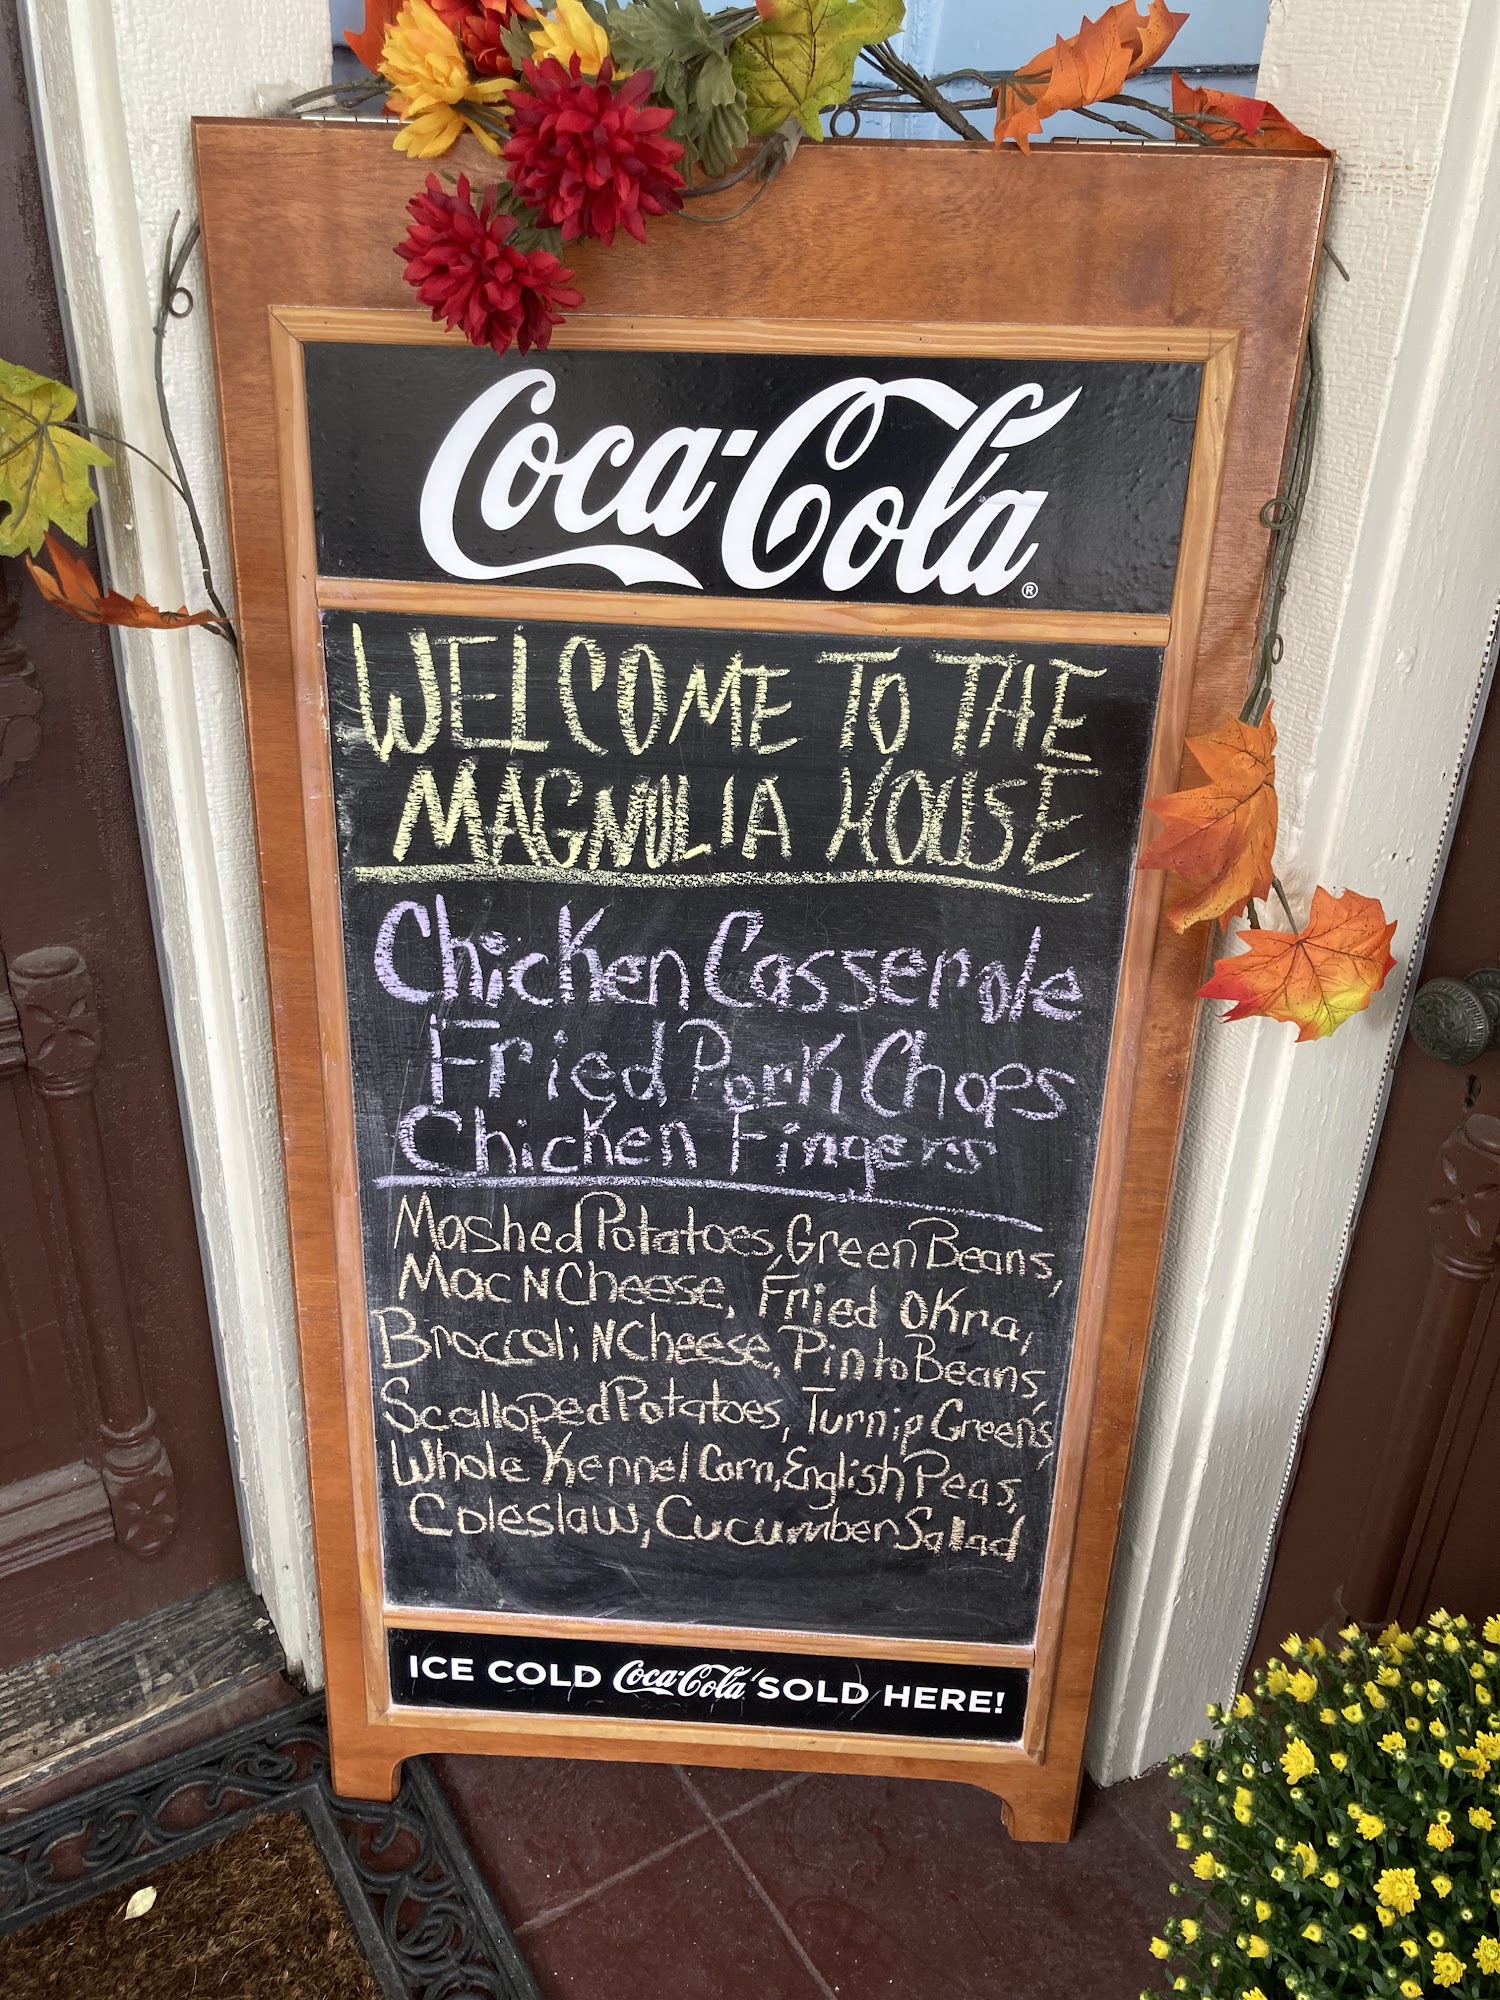 Coca-Cola®
WELCOME TO THE
MAGNOLIA HOUSE
Chicken Casserole
Fried Pork Chops
Chicken Fingers
Mashed Potatoes, Green Beans,
Mac N Cheese, Fried Okra,
Broccoli N Cheese, Pinto Beans,
Scalloped Potatoes, Turnip Greens,
Whole Kernnel Corn, English Peas,
Coleslaw, Cucumber Salad
ICE COLD Coca-Cola SOLD HERE!